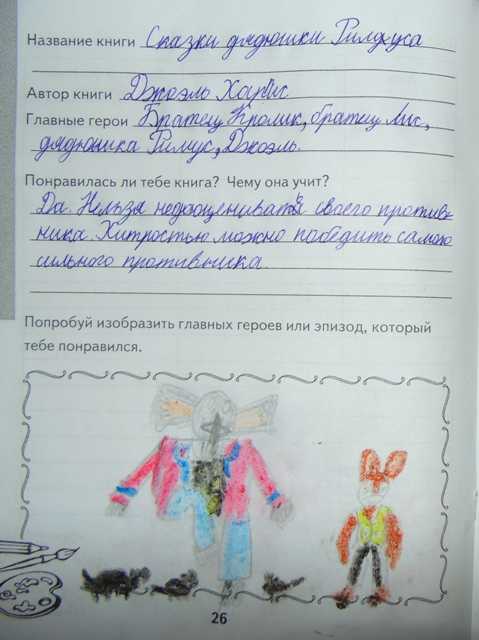 Название книги Сказки дядюшки Римуса
Автор книги Джоэль Харрис
Главные герои Братец Кролик, братец Лис,
дядюшка Римус, Джоэль.
Понравилась ли тебе книга? Чему она учит?
Да. Нельзя недооценивать своего против-
ника. Хитростью можно победить самого
сильного противника.
Попробуй изобразить главных героев или эпизод, который
тебе понравился.
26